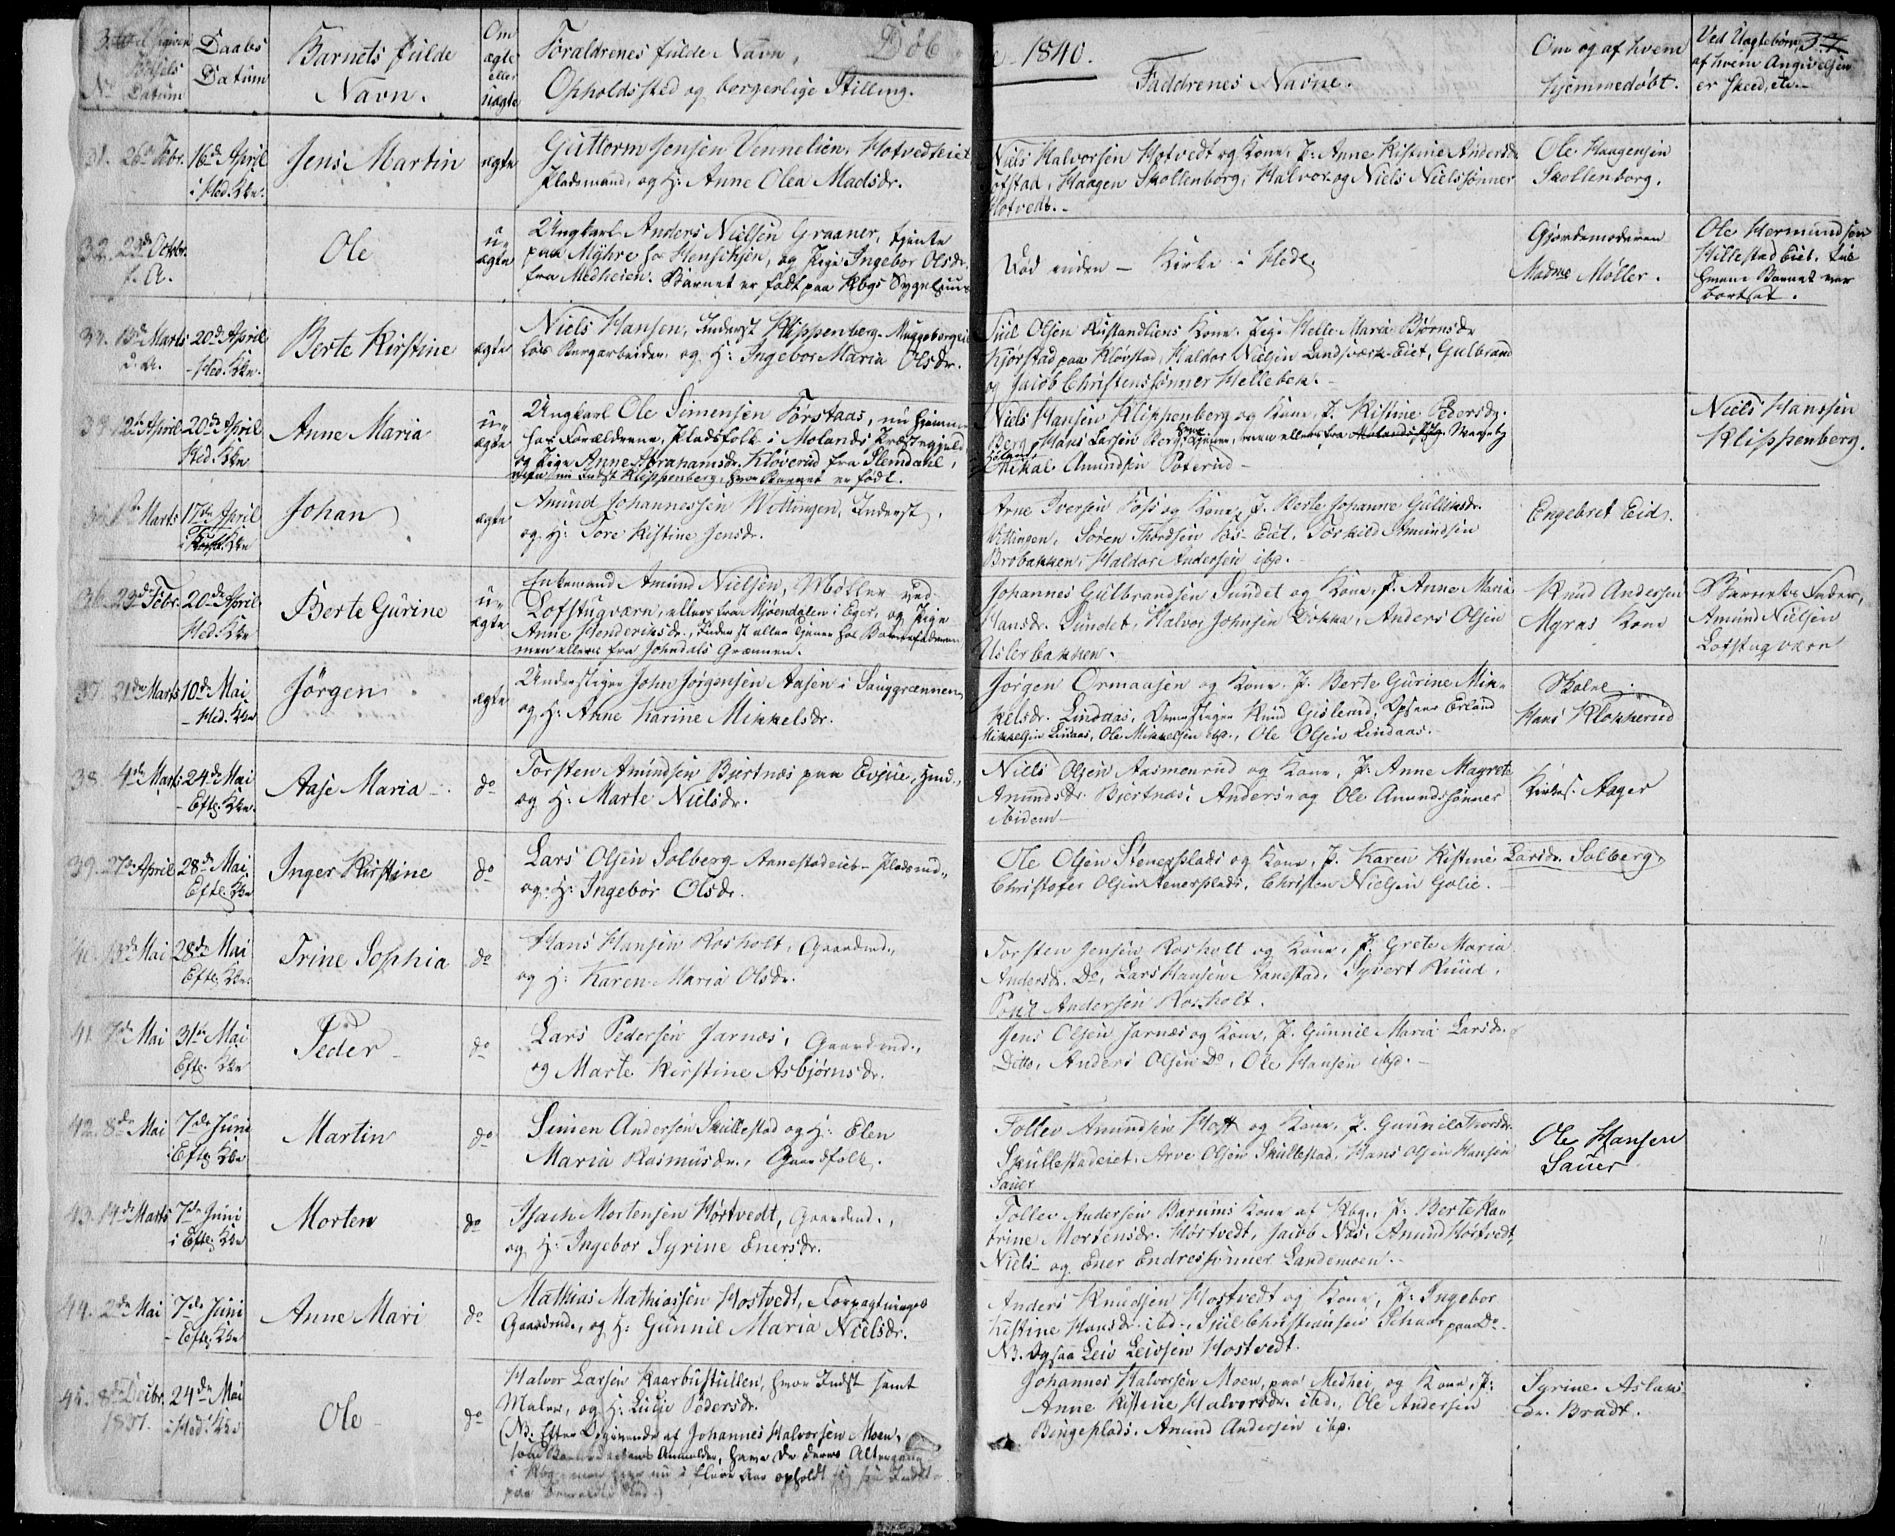 Daabs
Datum
Barnets fulde
Navn.
Om
ægte
eller
uægte
Forældrenes fulde Navn,
Opholdssted og borgerlige Stilling.
Døb
1840.
Faddrenes Navne.
Om og af hvem
hjemmedøbt.
Ved Uægtebørn,
af hvem Angivelsen
er skeed, etc.
37
31. 26de Febr. 16de April
i Hed. Kke.
Jens Martin
ægte
Guttorm Jensen Vennelien, Hotvedteiet
Pladsmand, og H: Anne Olea Madsdr.
Niels Halvorsen Hotvedt og Kone, P: Anne Kistine Andersdr
Tofstad, Haagen Skollenborg, Halvor og Niels Nielssønner
Hotvedt.
Ole Haagensen
Skollenborg.
32. 23de Octbr.
f. A.
Ole
u-
ægte
Ungkarl Anders Nielsen Graaner, tjente
paa Myhre hos Henschien, og Pige Ingebor Olsdr.
fra Medheien. Barnet er født paa Kbgs Sygehuus
Død inden Kirke i Hed.
Gjordemoderen
Madme Møller.
Ole Hermundsen
Hillestad Eiet, hos
hvem Barnet var
bortsat.
33. 13de Marts 20de April
d. A. Hed. Kke.
Berte Kirstine
ægte
Niels Hansen, Inderst Klippenberg,
løis Bergarbeider, og H: Ingebor Maria Olsdr.
Juel Olsen Kustandliens Kone, Pige Helle Maria Bjørnsdr
Kjørstad paa Kløvstad, Haldor Nielsen Landsværk-Eiet, Gulbrand
og Jacob Christenssønner Hellebek.
34. 12te April 20de April
Hed. Kke
Anne Maria
u-
ægte
Ungkarl Ole Simensen Førstaas, nu hjemme
hos Forældrene, Pladsfolk i Molands Præstegjeld,
og Pige Anne Abrahamsdr. Kløverud fra Slemdahl,
nu Indst Klippenberg, hvor Barnet er født.
Niels Hansen Klippenberg og Kone, P. Kistine Pedersdr.
Berg, Hans Larsen Berg
Mikal Amundsen Poterud
Niels Hanssen
Klippenberg.
35. Marts 17de April
Johan
ægte
Amund Johannessen Wettingen, Inderst,
og H: Tore Kistine Jensdr.
Arne Iversen Foss og Kone, P. Berte Johanne Gullensdr.
Vittingen, Søren Thordsen Fos-Eiet, Torkild Amundsen
Brobakken, Haldor Andersen ibid.
Engebret Eid.
36. 23de Febr. 20de April
Hed. Kke
Berte Gurine
u-
ægte
Enkemand Amund Nielsen, Møller ved
Lofstugværn, ellers fra Mjøendalen i Eger, og Pige
Anne Henderiksdr., Inderst eller tjener hos Barnefaderen
men ellers fra Johndals Grænnen.
Johannes Gulbrandsen Sundet og Kone, P. Anne Maria
Hansdr. Sundet, Halvor Johnsen Dokka, Anders Olsen
Uslerbakken.
Knud Andersen
Myras Kone
Barnets Fader,
Amund Nielsen
Lofstugværn
37. 21de Marts 10de Mai
Hed. Kke.
Jörgen
ægte
Understiger John Jørgensen Aasen i Sauggrænnen,
og H: Anne Karine Mikkelsdr.
Jørgen Ormaasen og Kone, P. Berte Gurine Mik-
kelsdr. Lindaas, Knud Gislerud, Erland
Mikkelsen Lindaas, Ole Mikkelsen ibd., Ole Olsen Lindaas.
Skolel.
Hans Klokkerud
38. 4de Marts 24de Mai
Eftl. Kke.
Aase Maria
do
Torsten Amundsen Bjertnæs paa Evjue, Hmd.,
og H: Marte Nielsdr.
Niels Olsen Aasmenrud og Kone, P. Anne Magrete
Amundsdr. Bjertnæs, Anders og Ole Amundssønner
ibidem
Kirkes. Aager
39. 27de April 28de Mai
Eftl. Kke
Inger Kirstine
do
Lars Olsen Solberg Aanestadeiet Pladsmd.,
og H: Ingebor Olsdr.
Ole Olsen Stenersplads og Kone, P. Karen Kistine Larsdr. Solberg,
Christofer Olsen Stenersplads, Christen Nielsen Golie.
40. 13de Mai 28de Mai
Eftl. Kke.
Trine Sophia
do
Hans Hansen Rosholt, Gaardmd.,
og H: Karen Maria Olsdr.
Torsten Jensen Rosholt og Kone, P. Grete Maria
Andersdr. Do, Lars Hansen Aanestad, Syvert Ruud,
Poul Andersen Rosholt.
41. 7de Mai 31te Mai
Eftl. Kke
Peder
do
Lars Pedersen Jarnæs, Gaardmd.,
og Marte Kirstine Asbjørnsdr.
Jens Olsen Jarnæs og Kone, P. Gunnil Maria Larsdr.
Ditto, Anders Olsen Do, Ole Hansen ibd.
42. 8de Mai 7de Juni
Eftl. Kke
Martin
do
Simen Andersen Skullestad og H: Elen
Maria Rasmusdr., Gaardfolk.
Follev Amundsen Hoff og Kone, P. Gunnil Thorsdr.
Skullestadeiet, Arve Olsen Skullestad, Hans Olsen Hansen
Sauer
Ole Hansen
Sauer
43. 14de Marts 7de Juni
i Eftl. Kke
Morten
do
Isach Mortensen Hørtvedt, Gaardmd.,
og H: Ingebor Syrine Enersdr.
Follev Andersen Barnins Kone af Kbg., P. Berte Ka-
trine Mortensdr. Hørtvedt, Jacob Næs, Amund Hørtvedt,
Niels og Ener Endressønner Landemoen.
44. 2de Mai 7de Juni
Eftl. Kke
Anne Mari
do
Mathias Mathiassen Hostvedt, Forpagtnings
Gaardmd., og H: Gunnil Maria Nielsdr.
Anders Knudsen Hostvedt og Kone, P. Ingebor
Kistine Hansdr. ibd., Juel Christiansen Schau paa Do
NB. Ogsaa Leiv Leivsen Hostvedt.
45. 8de Decbr. 24de Mai
1837. i Hed. Kke
Ole
do
Halvor Larsen Kaarbustullen, hvor Indst samt
Maler, og H: Lucie Pedersdr.
(NB. Efter Opgivende af Johannes Halvorsen Moen,
som Anmelder, have de deres Altergang
i Kbg., men have nu i flere Aar opholdt sig som Inderst
paa bemeldte Sted.)
Johannes Halvorsen Moen, paa Medhei, og Kone, P:
Anne Kistine Halvorsdr. ibd., Ole Andersen
Bingeplads, Amund Andersen ibd.
Syrine Aslaks-
dr. Bradt.